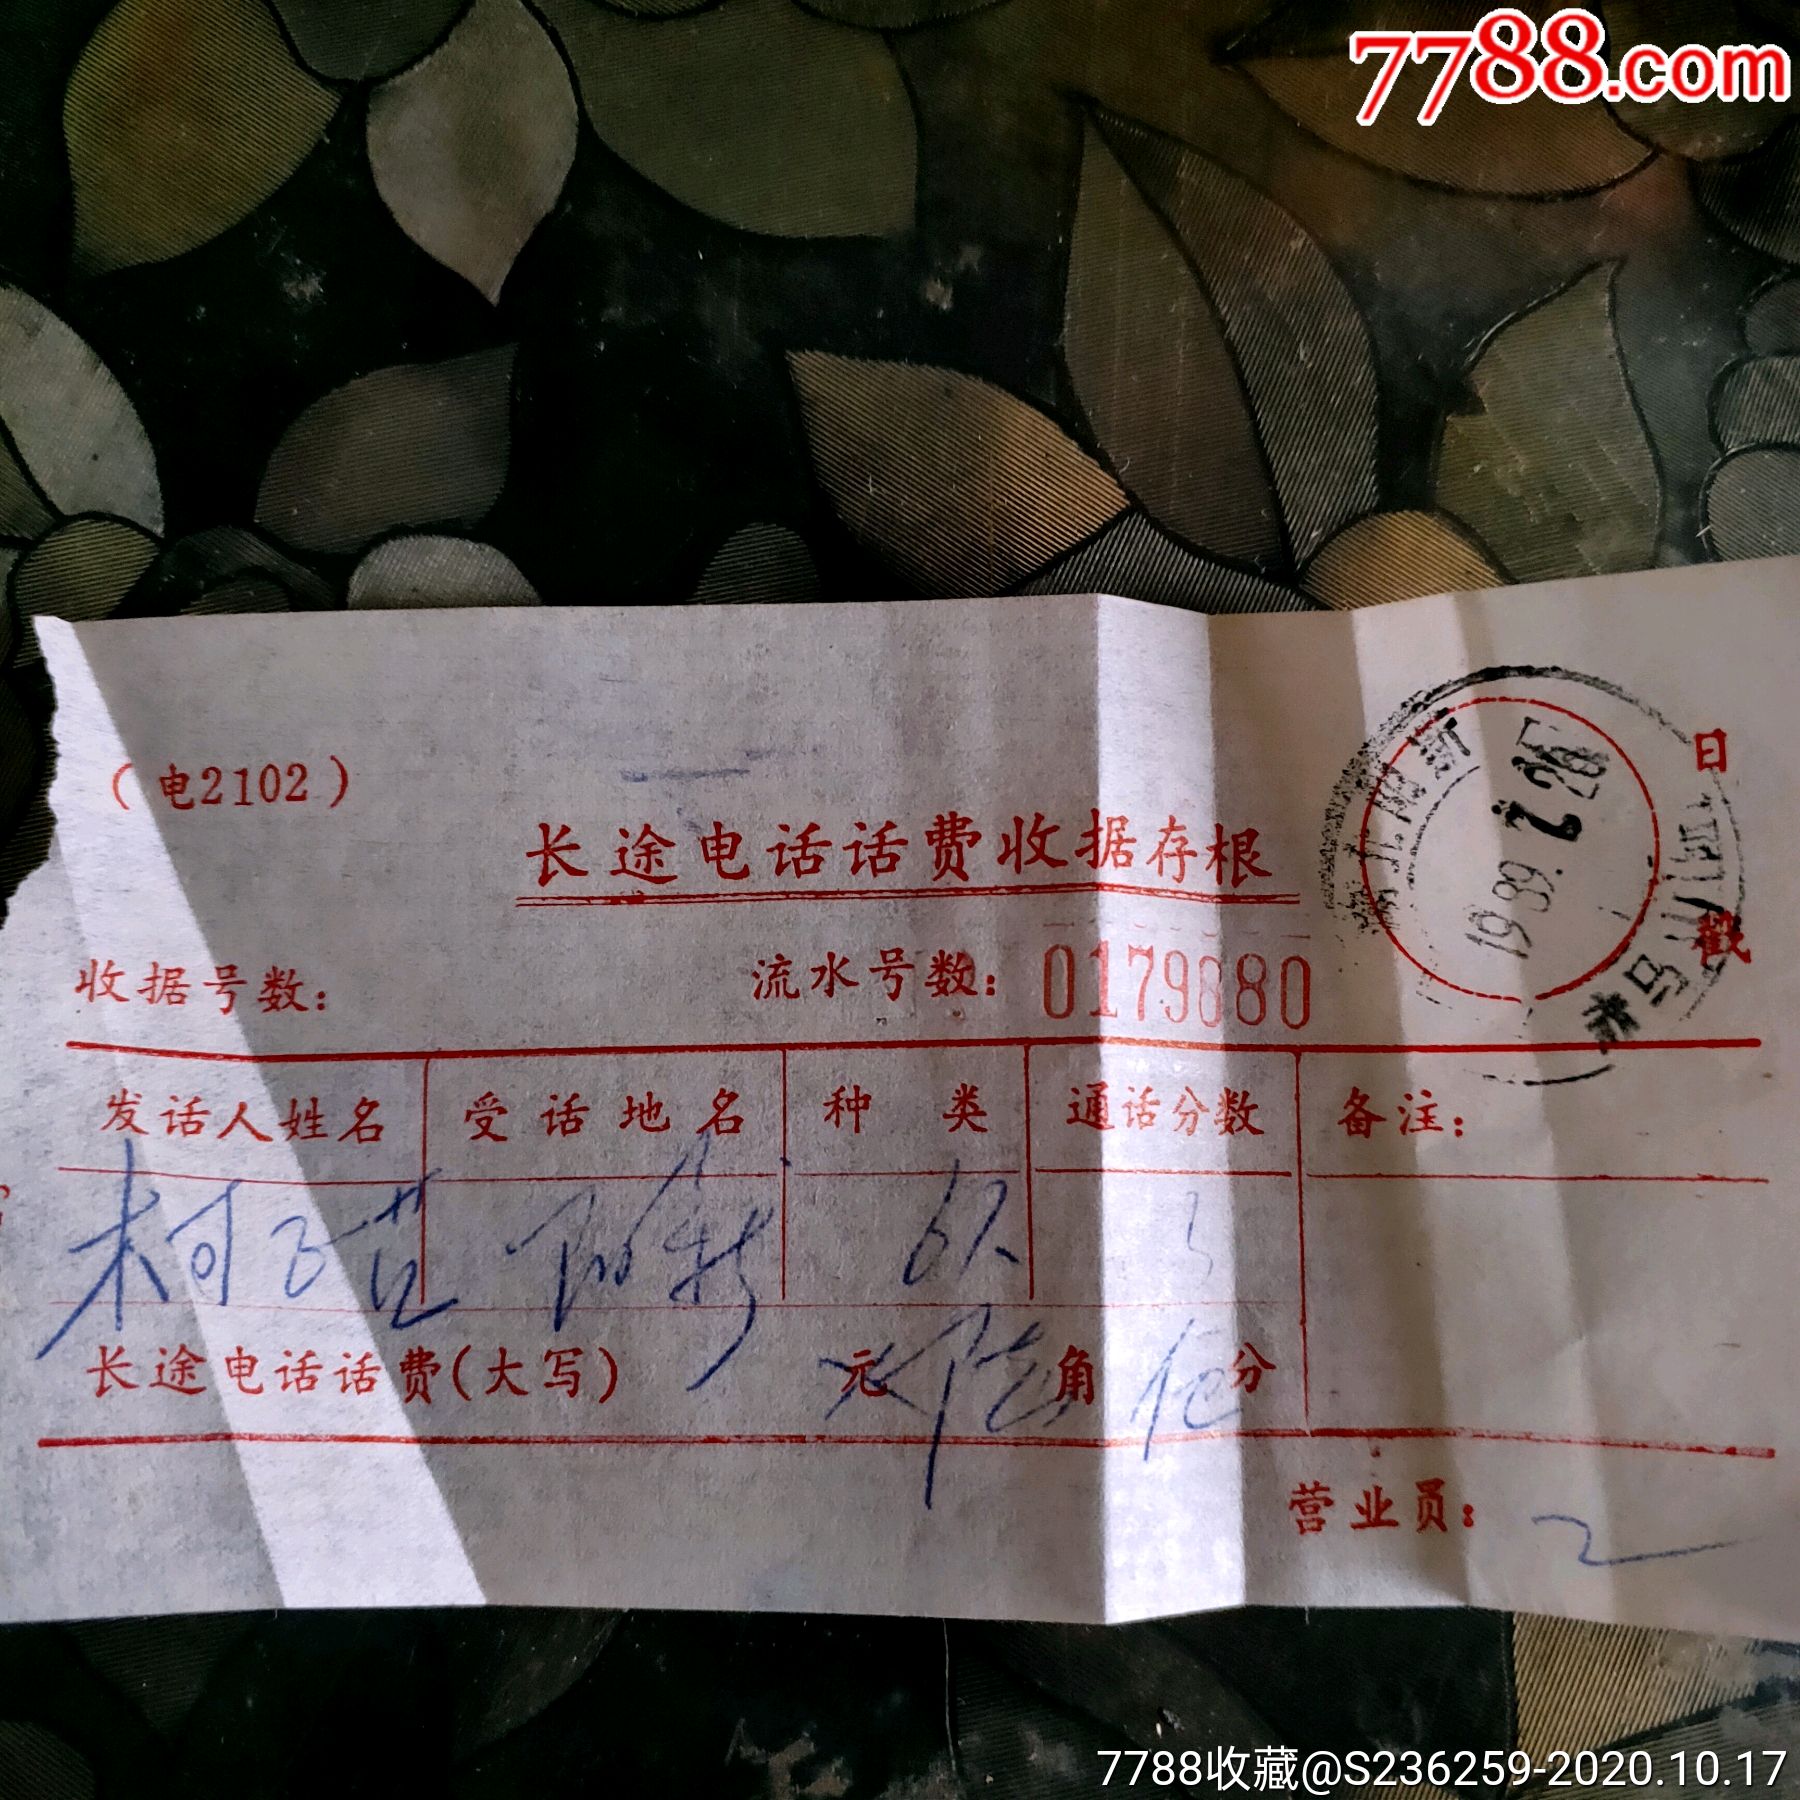 7788.com
(电2102)
日
长途电话话费收据存根
1989.7.26
戳
收据号数:
流水号数: 0179880
发话人姓名 受话地名 种类 通话分数 备注:
阳新 3
长途电话话费(大写) 元陆角伍分
营业员:
7788收藏@S236259-2020.10.17